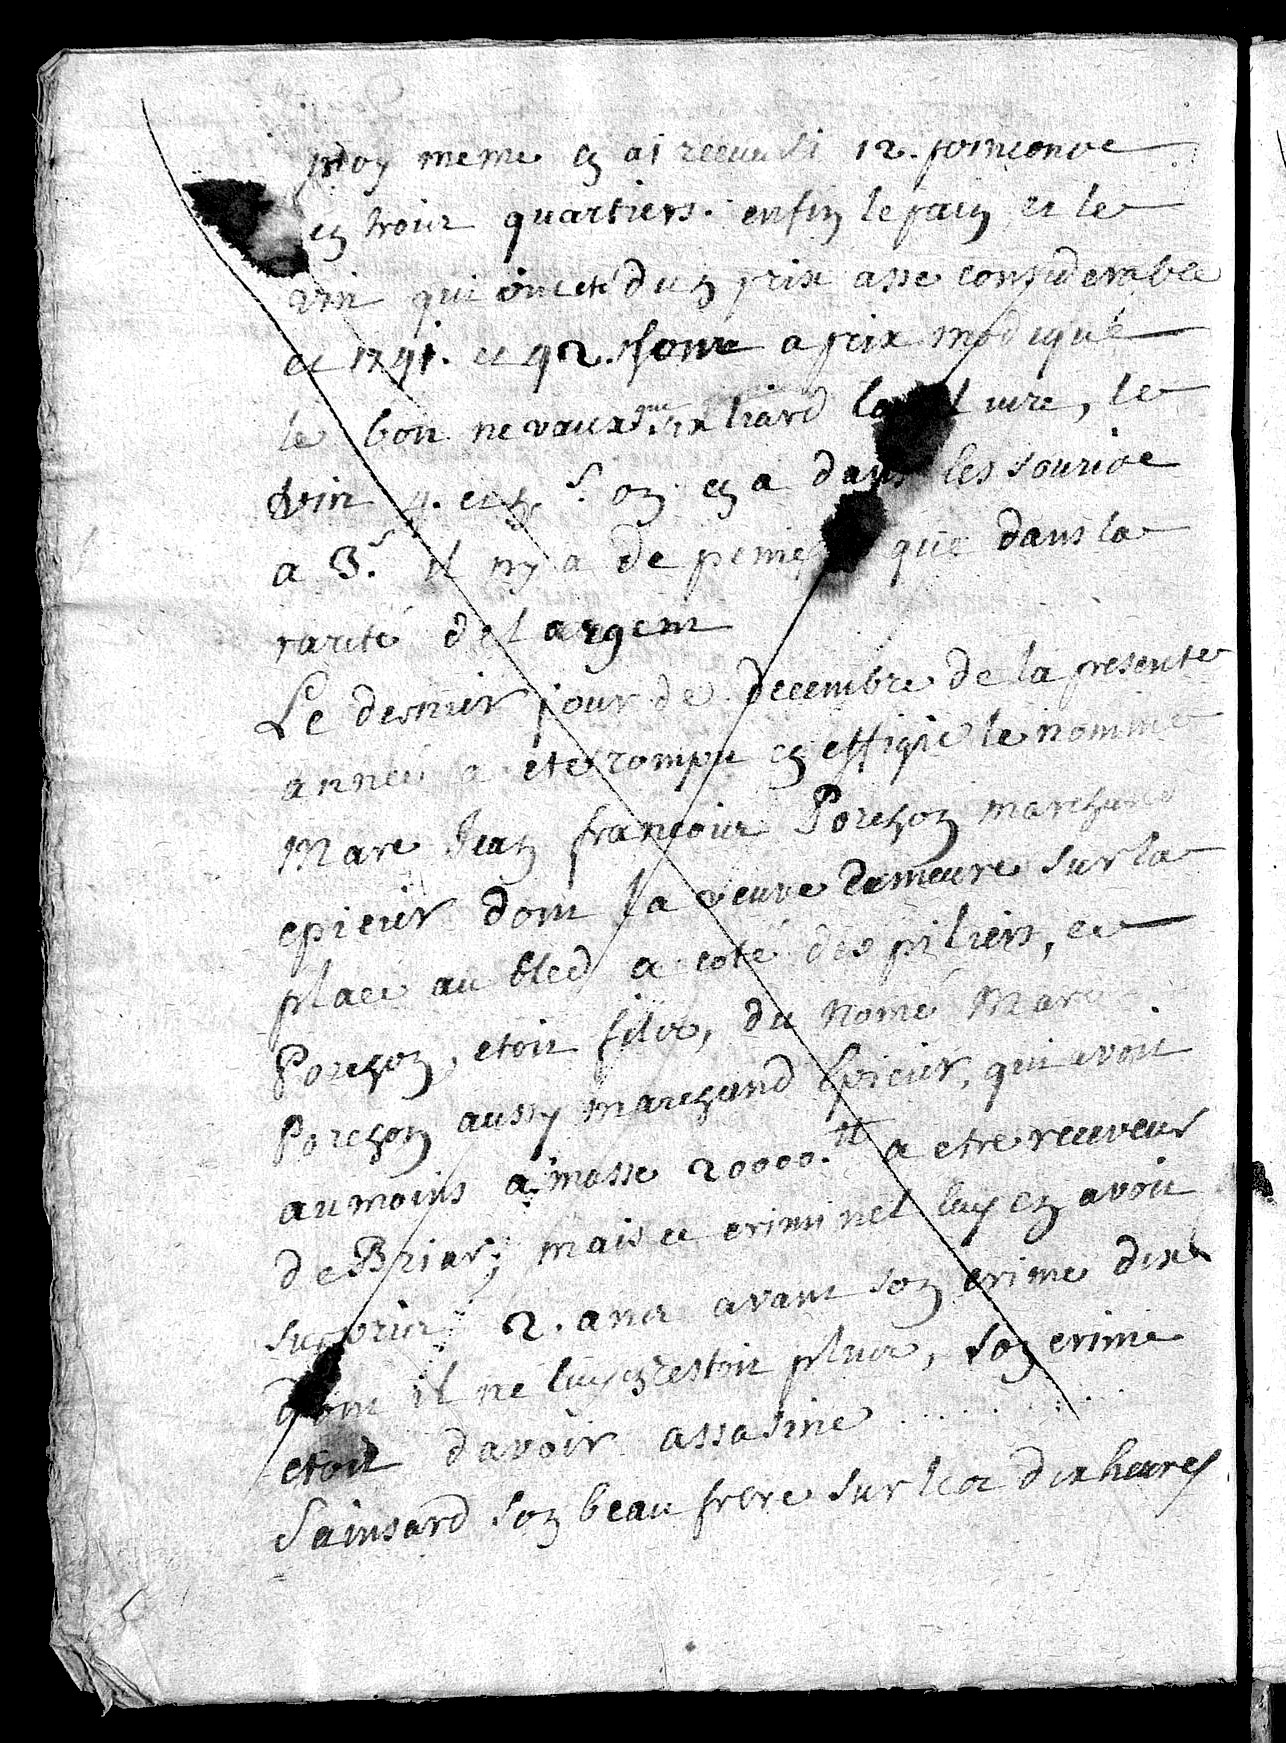 moy meme en ai recueusi 12. poincons
en trois quartiers. enfin le pain et le
vin qui ont eté dun prix asse considerable
et 1741. et 42. sont a prix modique
le bon ne vaux que six liard la livre, le
vin 4. et s. on en a dans les souris
a 3.s il ny a de peine que dans la
rareté de largent
Le dernier jour de decembre de la presente
année a eté rompu en effigie le nommé
Marc Jean francois Porchon marchand
epicier dont la veuve demeure sur la
place au bled a coté des piliers, ce
Porchon, etoit fils, du nomé Marc
Porchon aussy marchand Epicier, qui avoit
aumoins amasse 20000.tt a etre receveur
de Briare; mais ce criminel luy en avoit
2. ans avant son crime dix
dont il ne luy en restoit plus, son crime
etoit davoir assasiné . . . . . . .
Sainsard son beau frere sur les dix heures